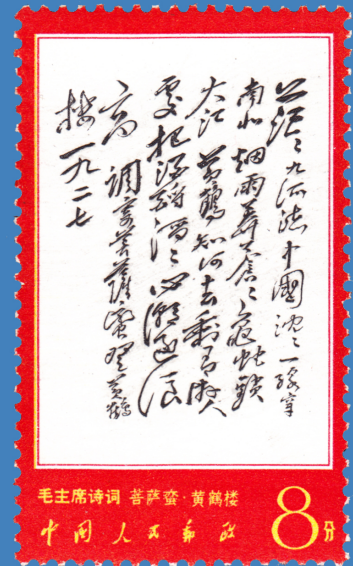 茫々九派流中國沈々一線穿
南北烟雨莽蒼々龜蛇鎖
大江 黄鶴知何去剩有游人
處把酒酹滔々心潮逐浪
高 調寄菩薩蛮登黄鶴
楼 一九二七
毛主席诗词 菩萨蛮·黄鹤楼
中国人民邮政
8分